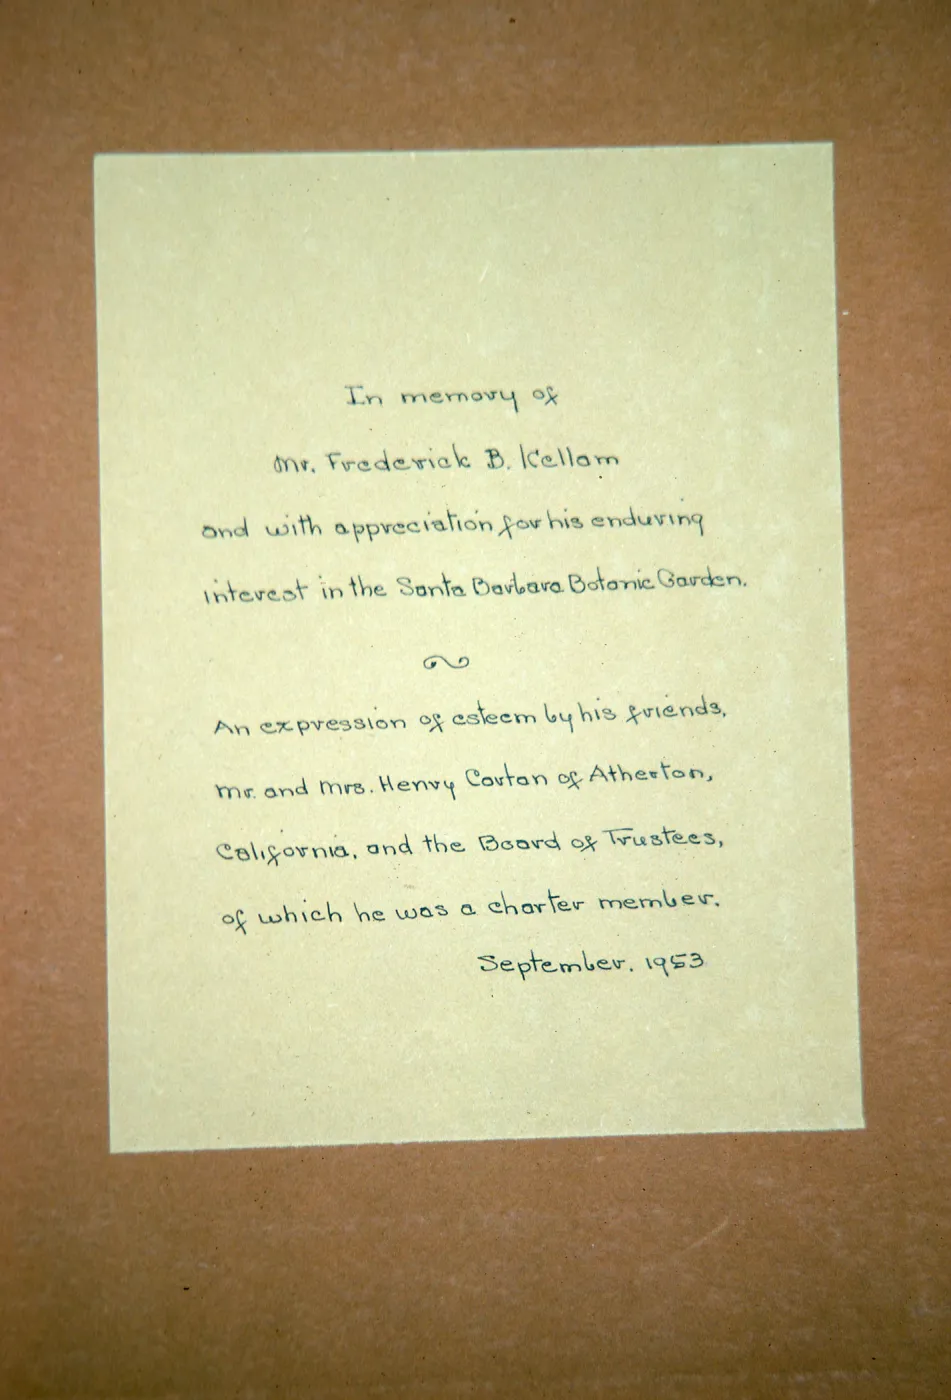 In memory of
Mr. Frederick B. Kellam
and with appreciation for his enduring
interest in the Santa Barbara Botanic Garden.
An expression of esteem by his friends,
Mr. and Mrs. Henry Cortan of Atherton,
California, and the Board of Trustees,
of which he was a charter member.
September. 1953